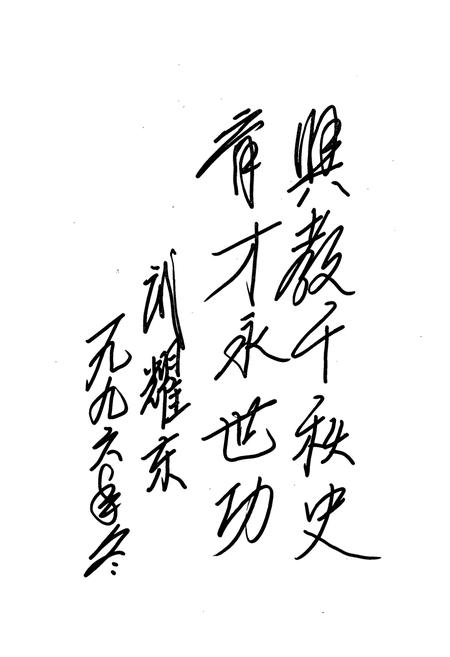 興教千秋史
育才永世功
耀东
一九九六年冬